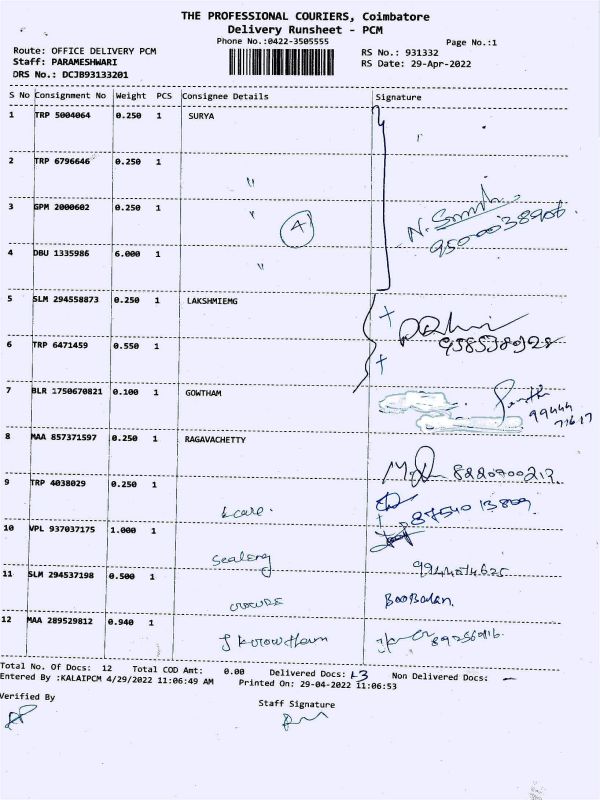 THE PROFESSIONAL COURIERS, Coimbatore
Delivery Runsheet - PCM
Phone No.:0422-3505555
Page No.:1
Route: OFFICE DELIVERY PCM
RS No.: 931332
Staff: PARAMESHWARI
RS Date: 29-Apr-2022
DRS No.: DCJB93133201
S No Consignment No Weight PCS Consignee Details Signature
1 TRP 5004064 0.250 1 SURYA
2 TRP 6796646 0.250 1 "
3 GPM 2000602 0.250 1 "
4
4 DBU 1335986 6.000 1 "
5 SLM 294558873 0.250 1 LAKSHMIEMG
6 TRP 6471459 0.550 1
7 BLR 1750670821 0.100 1 GOWTHAM
99444
71617
8 MAA 857371597 0.250 1 RAGAVACHETTY
8220700217.
9 TRP 4038029 0.250 1 care.
10 VPL 937037175 1.000 1
11 SLM 294537198 0.500 1
12 MAA 289529812 0.940 1
Total No. Of Docs: 12 Total COD Amt: 0.00 Delivered Docs: 13 Non Delivered Docs: -
Entered By :KALAIPCM 4/29/2022 11:06:49 AM Printed On: 29-04-2022 11:06:53
Verified By
Staff Signature